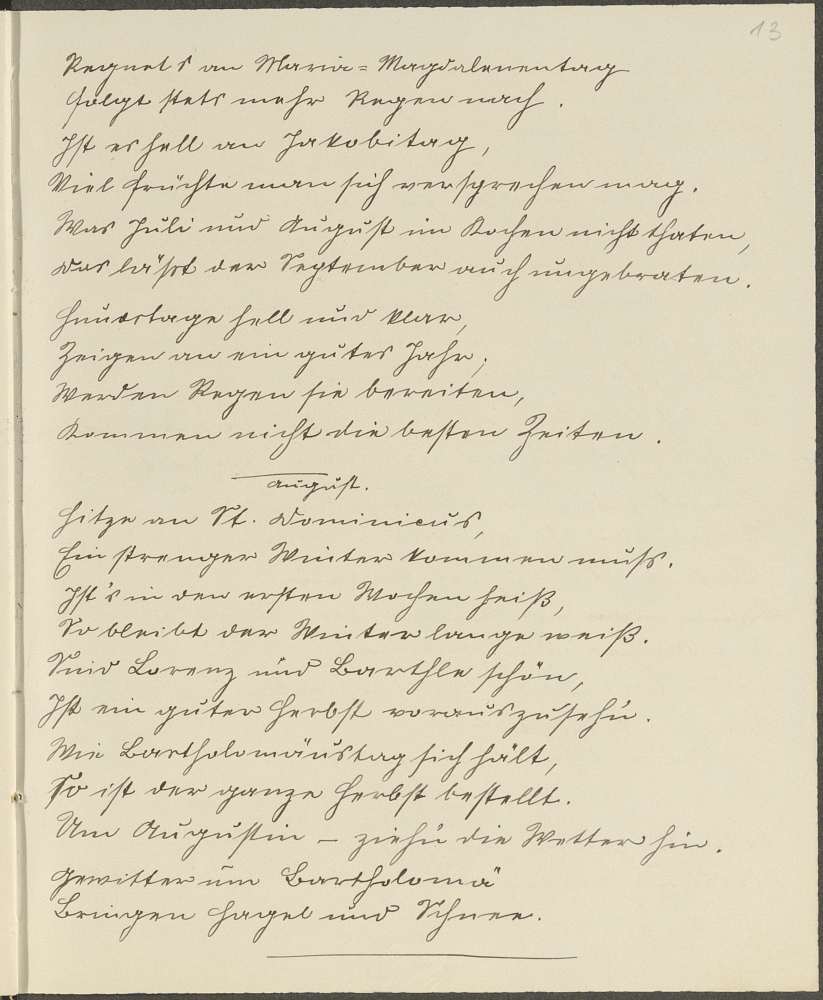 13
Regnet's an Maria-Magdalenentag
folgt stets mehr Regen nach.
Ist es hell an Jakobitag,
Viel Früchte man sich versprechen mag.
Was Juli und August im Kochen nicht thaten,
das läßt der September auch ungebraten.
Hundstage hell und klar,
Zeigen an ein gutes Jahr;
Werden Regen sie bereiten,
Kommen nicht die besten Zeiten.
August.
Hitze an St. Dominicus,
Ein strenger Winter kommen muß.
Ist's in den ersten Wochen heiß,
So bleibt der Winter lange weiß.
Sind Lorenz und Barthle schön,
Ist ein guter Herbst vorauszusehn.
Wie Bartholomäustag sich hält,
So ist der ganze Herbst bestellt.
Um Augustin – ziehn die Wetter hin.
Gewitter um Bartholomä
Bringen Hagel und Schnee.